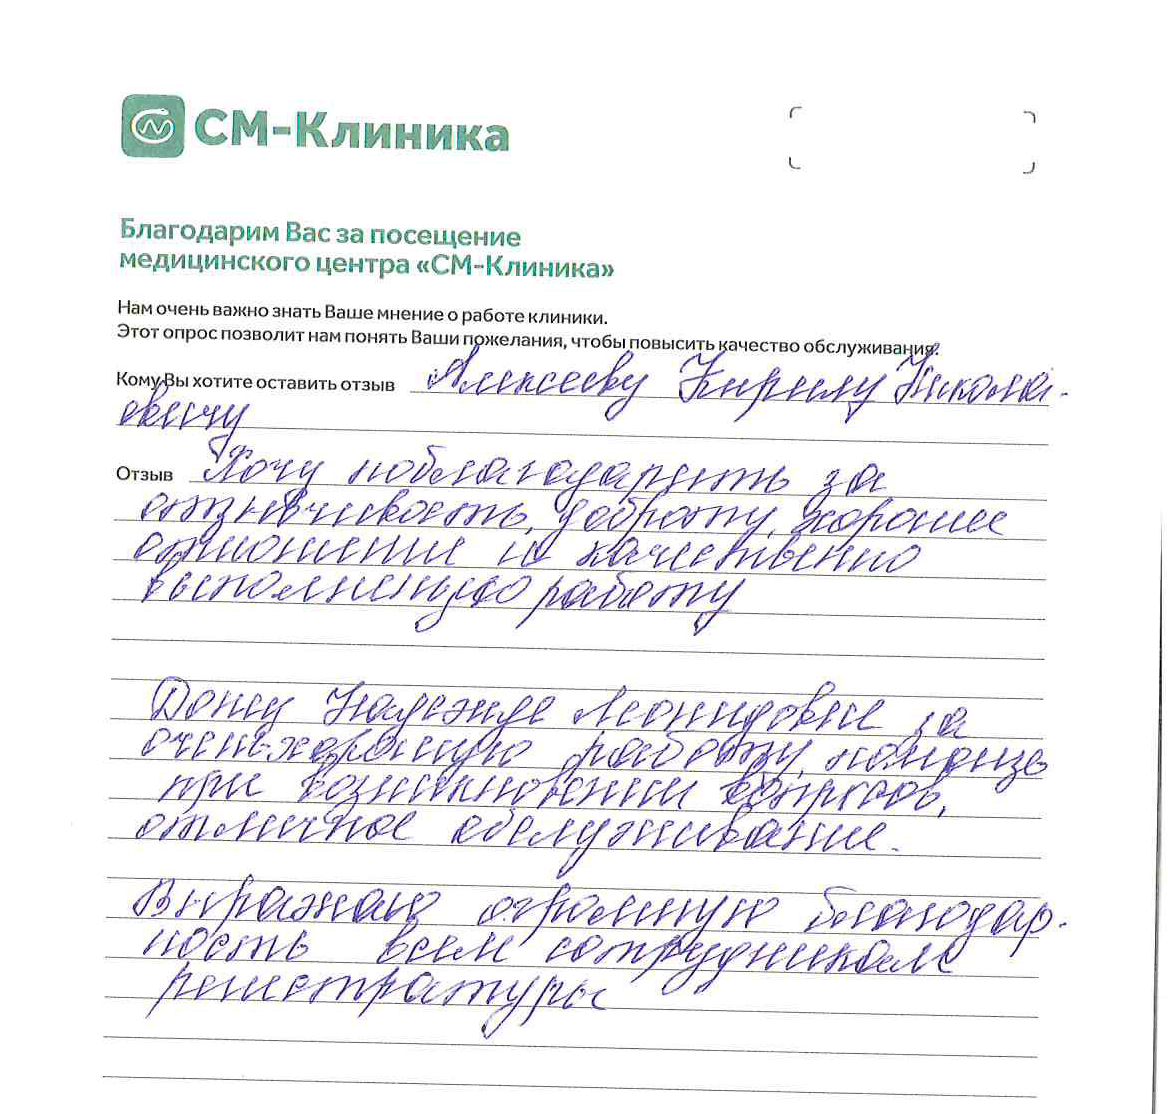 СМ-Клиника
Благодарим Вас за посещение
медицинского центра «СМ-Клиника»
Нам очень важно знать Ваше мнение о работе клиники.
Этот опрос позволит нам понять Ваши пожелания, чтобы повысить качество обслуживания.
Кому Вы хотите оставить отзыв Алексееву Кирилу Никола-
евичу
Отзыв Хочу поблагодарить за
отзывчивость, доброту, хорошее
отношение и качественно
выполненную работу
Надежде Леонидовне за
очень хорошую работу, помощь
при возникновении вопросов,
отличное обслуживание.
Выражаю огромную благодар-
ность всем сотрудникам
регистратуры